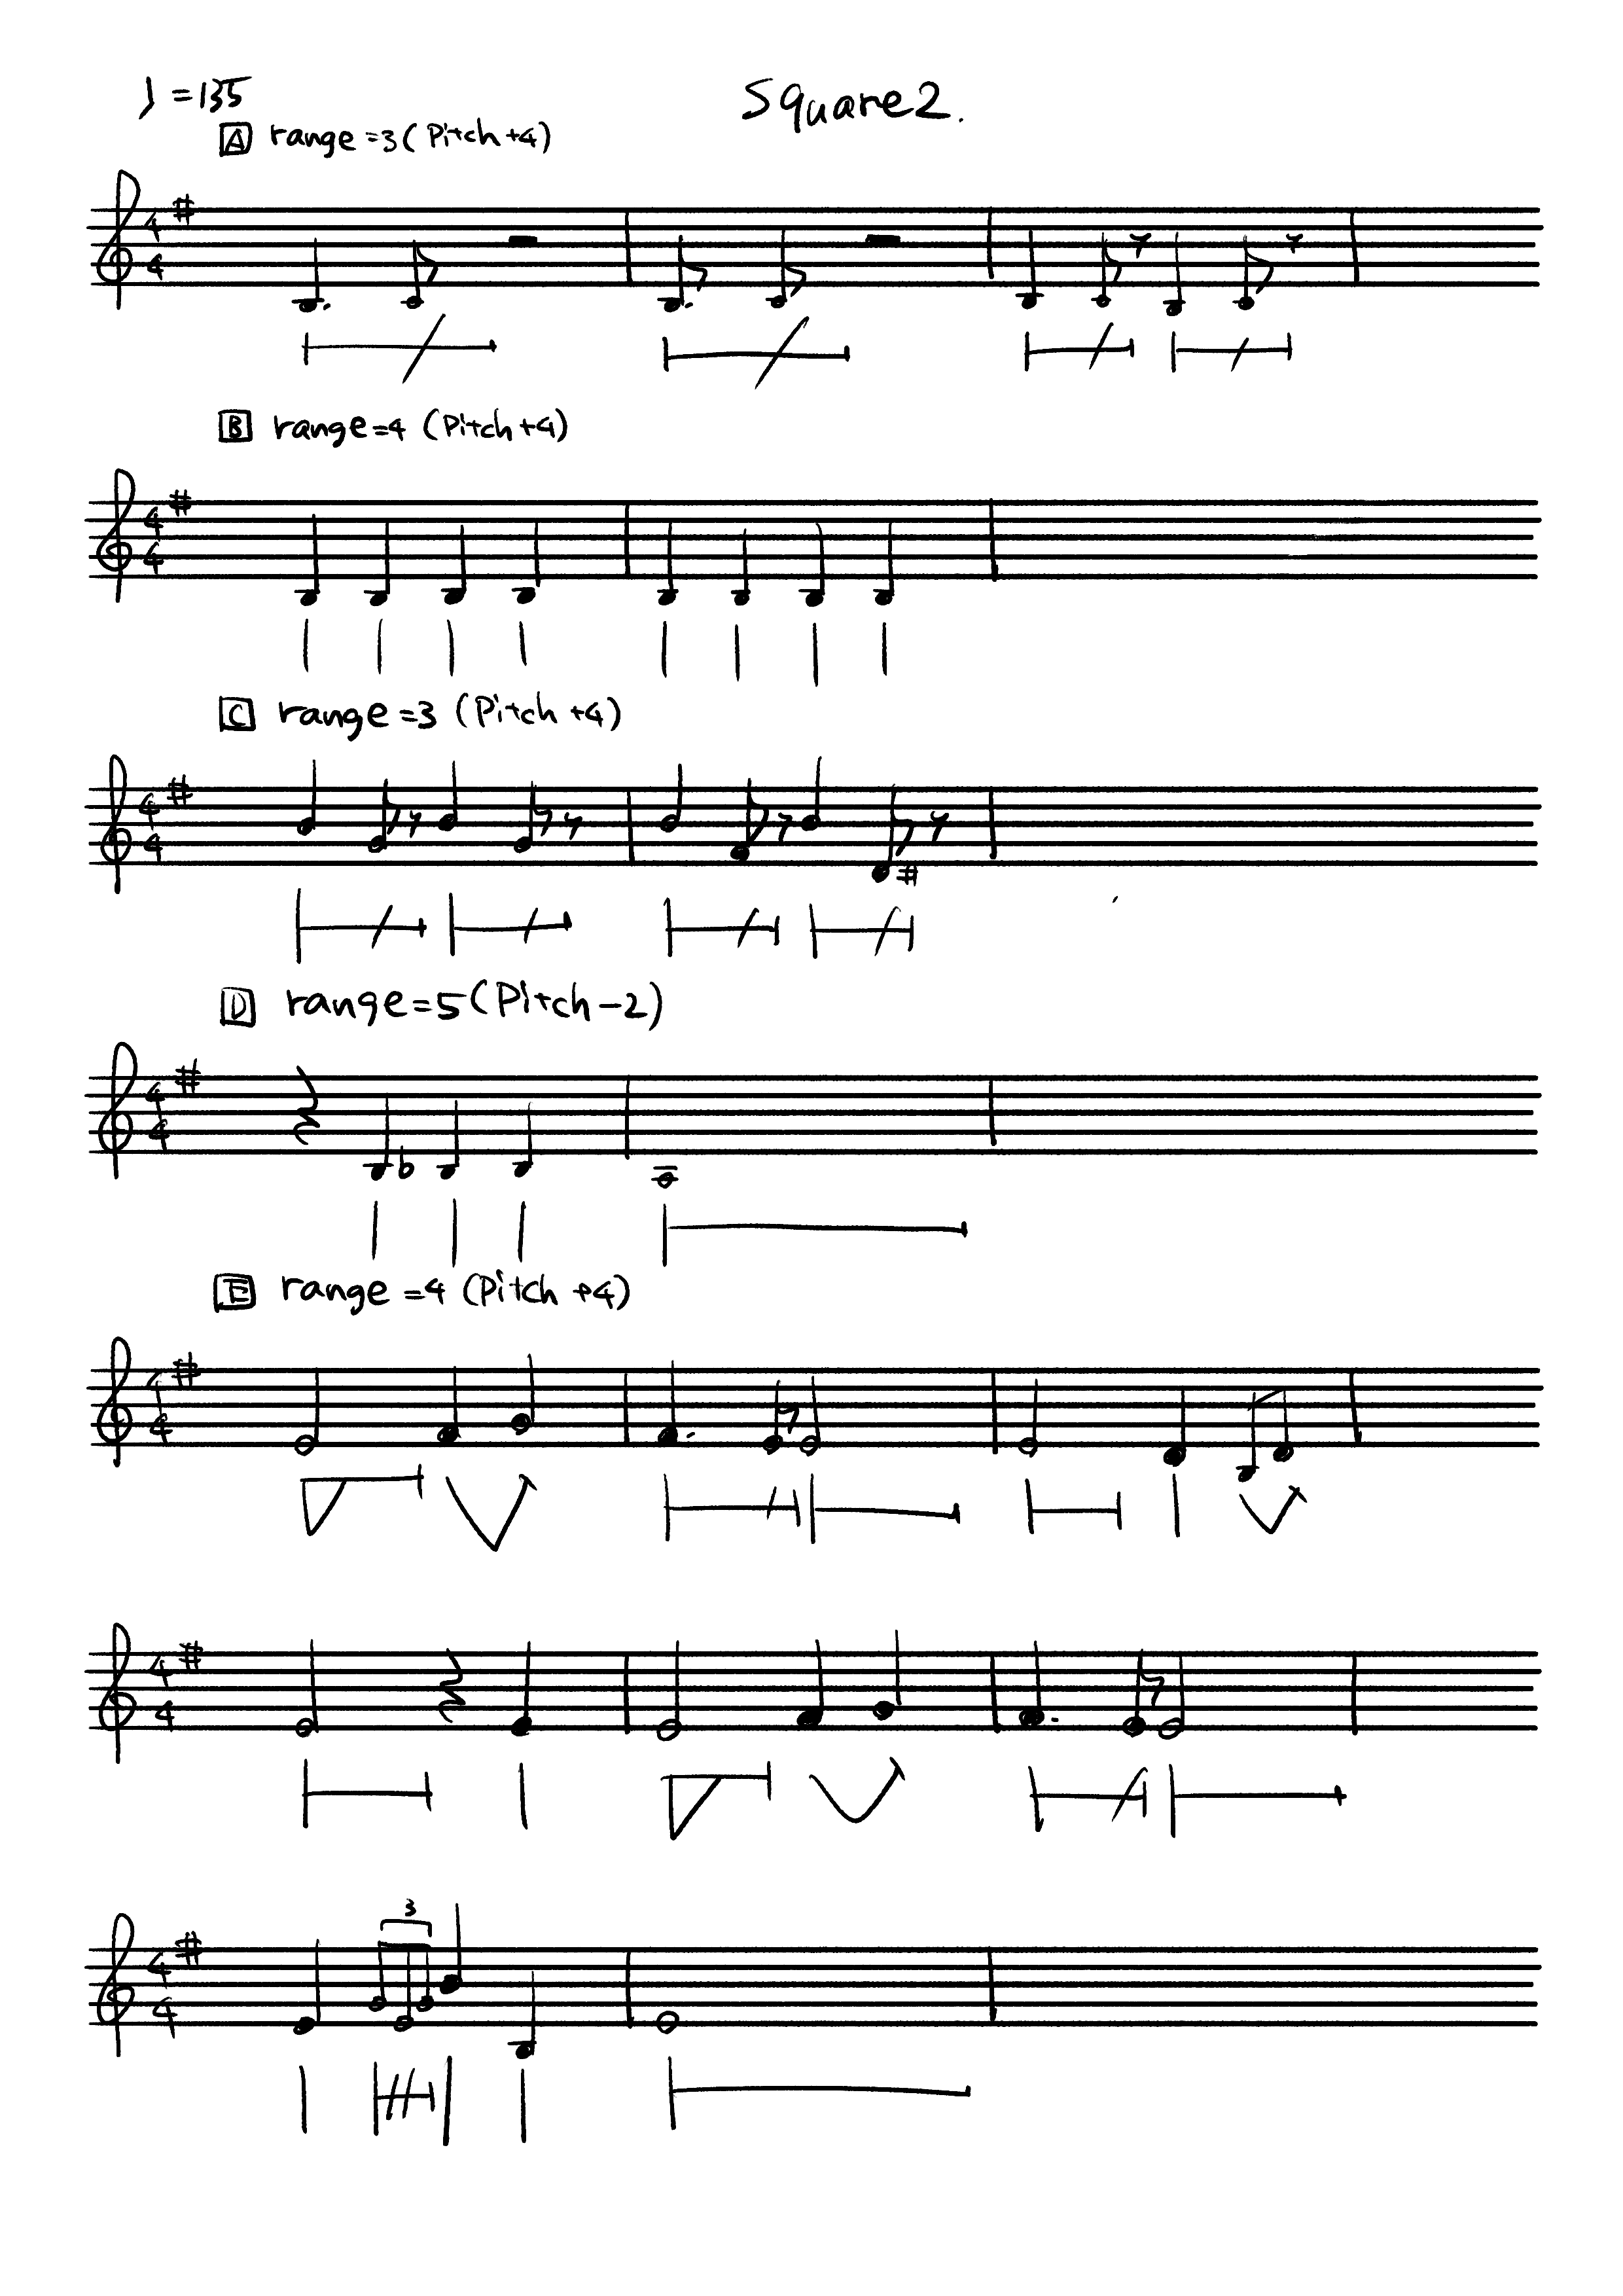 ♩=135
Square2.
A range=3(Pitch+4)
4
4
B range=4 (Pitch+4)
4
4
C range=3 (Pitch+4)
4
4
D range=5(Pitch-2)
4
4
E range=4 (Pitch+4)
4
4
4
4
3
4
4